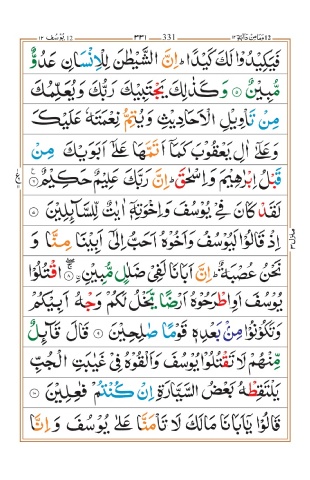 ١٢ يُوسُف 12 ٣٣١ 331 وَمَا مِنْ دَآبَّةٍ ١٢
فَيَكِيْدُوْا لَكَ كَيْدًا ؕ اِنَّ الشَّيْطٰنَ لِلْاِنْسَانِ عَدُوٌّ
مُّبِيْنٌ ۝۵ وَكَذٰلِكَ يَجْتَبِيْكَ رَبُّكَ وَيُعَلِّمُكَ
مِنْ تَاْوِيْلِ الْاَحَادِيْثِ وَيُتِمُّ نِعْمَتَهٗ عَلَيْكَ
وَعَلٰۤى اٰلِ يَعْقُوْبَ كَمَاۤ اَتَمَّهَا عَلٰۤى اَبَوَيْكَ مِنْ
قَبْلُ اِبْرٰهِيْمَ وَاِسْحٰقَ ؕ اِنَّ رَبَّكَ عَلِيْمٌ حَكِيْمٌ ۝۶
لَقَدْ كَانَ فِيْ يُوْسُفَ وَاِخْوَتِهٖۤ اٰيٰتٌ لِّلسَّآئِلِيْنَ ۝۷
اِذْ قَالُوْا لَيُوْسُفُ وَاَخُوْهُ اَحَبُّ اِلٰۤى اَبِيْنَا مِنَّا وَ
نَحْنُ عُصْبَةٌ ؕ اِنَّ اَبَانَا لَفِيْ ضَلٰلٍ مُّبِيْنِ ۝۸ اقْتُلُوْا
يُوْسُفَ اَوِ اطْرَحُوْهُ اَرْضًا يَّخْلُ لَكُمْ وَجْهُ اَبِيْكُمْ
وَتَكُوْنُوْا مِنْۢ بَعْدِهٖ قَوْمًا صٰلِحِيْنَ ۝۹ قَالَ قَآئِلٌ
مِّنْهُمْ لَا تَقْتُلُوْا يُوْسُفَ وَاَلْقُوْهُ فِيْ غَيٰبَتِ الْجُبِّ
يَلْتَقِطْهُ بَعْضُ السَّيَّارَةِ اِنْ كُنْتُمْ فٰعِلِيْنَ ۝۱۰
قَالُوْا يٰۤاَبَانَا مَالَكَ لَا تَاْمَنَّا عَلٰى يُوْسُفَ وَ اِنَّا